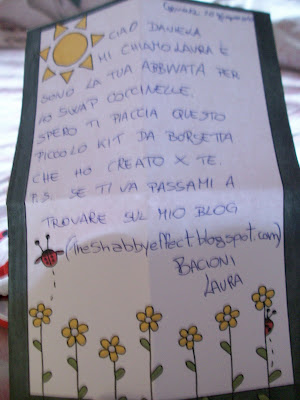 CIAO DANIELA
MI CHIAMO LAURA E
SONO LA TUA ABBINATA PER
LO SWAP COCCINELLE.
SPERO TI PIACCIA QUESTO
PICCOLO KIT DA BORSETTA
CHE HO CREATO X TE.
P.S. SE TI VA PASSAMI A
TROVARE SUL MIO BLOG
(theshabbyeffect.blogspot.com)
BACIONI
LAURA